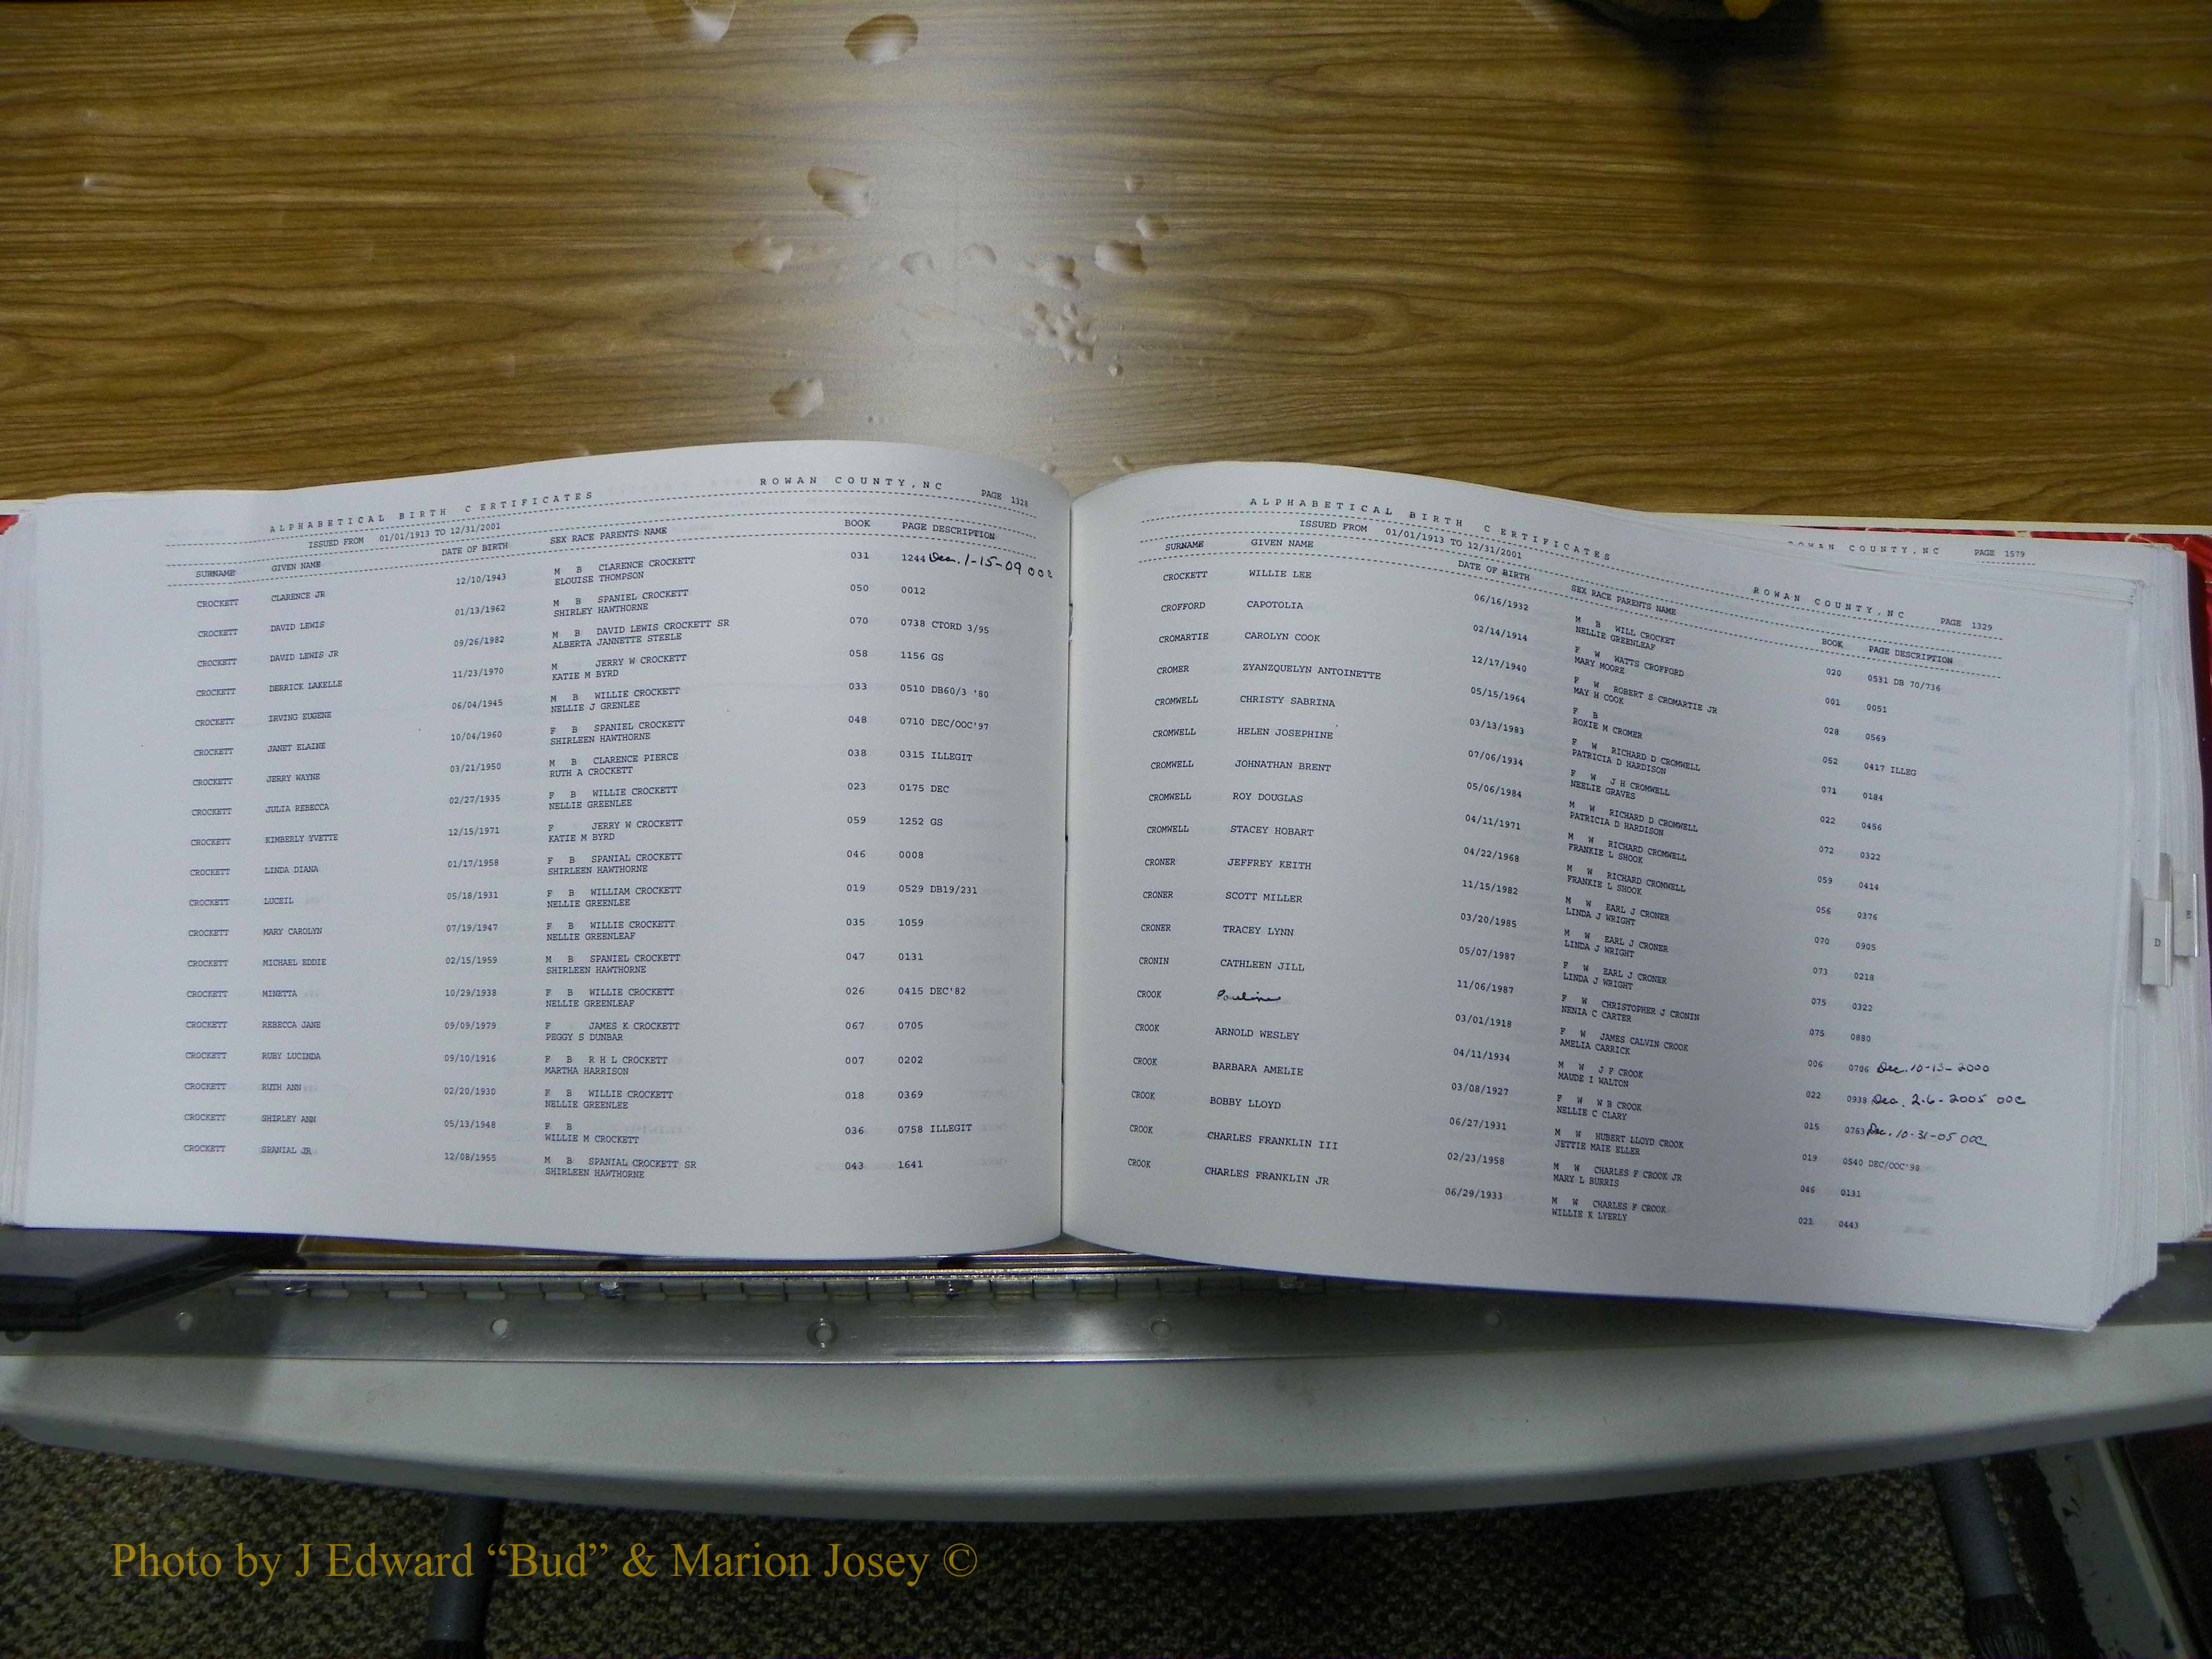 ALPHABETICAL BIRTH CERTIFICATES ROWAN COUNTY, NC PAGE 1328
ISSUED FROM 01/01/1913 TO 12/31/2001
SURNAME GIVEN NAME DATE OF BIRTH SEX RACE PARENTS NAME BOOK PAGE DESCRIPTION
CROCKETT CLARENCE JR 12/10/1943 M B CLARENCE CROCKETT 031 1244 Dec. 1-15-09 OOC
ELOUISE THOMPSON
CROCKETT DAVID LEWIS 01/13/1962 M B SPANIEL CROCKETT 050 0012
SHIRLEY HAWTHORNE
CROCKETT DAVID LEWIS JR 09/26/1982 M B DAVID LEWIS CROCKETT SR 070 0738 CTORD 3/95
ALBERTA JANNETTE STEELE
CROCKETT DERRICK LAKELLE 11/23/1970 M JERRY W CROCKETT 058 1156 GS
KATIE M BYRD
CROCKETT IRVING EUGENE 06/04/1945 M B WILLIE CROCKETT 033 0510 DB60/3 '80
NELLIE J GRENLEE
CROCKETT JANET ELAINE 10/04/1960 F B SPANIEL CROCKETT 048 0710 DEC/OOC'97
SHIRLEEN HAWTHORNE
CROCKETT JERRY WAYNE 03/21/1950 M B CLARENCE PIERCE 038 0315 ILLEGIT
RUTH A CROCKETT
CROCKETT JULIA REBECCA 02/27/1935 F B WILLIE CROCKETT 023 0175 DEC
NELLIE GREENLEE
CROCKETT KIMBERLY YVETTE 12/15/1971 F JERRY W CROCKETT 059 1252 GS
KATIE M BYRD
CROCKETT LINDA DIANA 01/17/1958 F B SPANIAL CROCKETT 046 0008
SHIRLEEN HAWTHORNE
CROCKETT LUCEIL 05/18/1931 F B WILLIAM CROCKETT 019 0529 DB19/231
NELLIE GREENLEE
CROCKETT MARY CAROLYN 07/19/1947 F B WILLIE CROCKETT 035 1059
NELLIE GREENLEAF
CROCKETT MICHAEL EDDIE 02/15/1959 M B SPANIEL CROCKETT 047 0131
SHIRLEEN HAWTHORNE
CROCKETT MINETTA 10/29/1938 F B WILLIE CROCKETT 026 0415 DEC'82
NELLIE GREENLEAF
CROCKETT REBECCA JANE 09/09/1979 F JAMES K CROCKETT 067 0705
PEGGY S DUNBAR
CROCKETT RUBY LUCINDA 09/10/1916 F B R H L CROCKETT 007 0202
MARTHA HARRISON
CROCKETT RUTH ANN 02/20/1930 F B WILLIE CROCKETT 018 0369
NELLIE GREENLEE
CROCKETT SHIRLEY ANN 05/13/1948 F B 036 0758 ILLEGIT
WILLIE M CROCKETT
CROCKETT SPANIAL JR 12/08/1955 M B SPANIAL CROCKETT SR 043 1641
SHIRLEEN HAWTHORNE
ROWAN COUNTY, NC PAGE 1579
ALPHABETICAL BIRTH CERTIFICATES ROWAN COUNTY, NC PAGE 1329
ISSUED FROM 01/01/1913 TO 12/31/2001
SURNAME GIVEN NAME DATE OF BIRTH SEX RACE PARENTS NAME BOOK PAGE DESCRIPTION
CROCKETT WILLIE LEE 06/16/1932 M B WILL CROCKET 020 0531 DB 70/736
NELLIE GREENLEAF
CROFFORD CAPOTOLIA 02/14/1914 F W WATTS CROFFORD 001 0051
MARY MOORE
CROMARTIE CAROLYN COOK 12/17/1940 F W ROBERT S CROMARTIE JR 028 0569
MAY H COOK
CROMER ZYANZQUELYN ANTOINETTE 05/15/1964 F B 052 0417 ILLEG
ROXIE M CROMER
CROMWELL CHRISTY SABRINA 03/13/1983 F W RICHARD D CROMWELL 071 0184
PATRICIA D HARDISON
CROMWELL HELEN JOSEPHINE 07/06/1934 F W J H CROMWELL 022 0456
NEELIE GRAVES
CROMWELL JOHNATHAN BRENT 05/06/1984 M W RICHARD D CROMWELL 072 0322
PATRICIA D HARDISON
CROMWELL ROY DOUGLAS 04/11/1971 M W RICHARD CROMWELL 059 0414
FRANKIE L SHOOK
CROMWELL STACEY HOBART 04/22/1968 M W RICHARD CROMWELL 056 0376
FRANKIE L SHOOK
CRONER JEFFREY KEITH 11/15/1982 M W EARL J CRONER 070 0905
LINDA J WRIGHT
CRONER SCOTT MILLER 03/20/1985 M W EARL J CRONER 073 0218
LINDA J WRIGHT
CRONER TRACEY LYNN 05/07/1987 F W EARL J CRONER 075 0322
LINDA J WRIGHT
CRONIN CATHLEEN JILL 11/06/1987 F W CHRISTOPHER J CRONIN 075 0880
NENIA C CARTER
CROOK Pauline 03/01/1918 F W JAMES CALVIN CROOK 006 0786 Dec. 10-13-2000
AMELIA CARRICK
CROOK ARNOLD WESLEY 04/11/1934 M W J F CROOK 022 0938 Dec. 2-6-2005 OOC
MAUDE I WALTON
CROOK BARBARA AMELIE 03/08/1927 F W W B CROOK 015 0763 Dec. 10-31-05 OOC
NELLIE C CLARY
CROOK BOBBY LLOYD 06/27/1931 M W HUBERT LLOYD CROOK 019 0540 DEC/OOC'98
JETTIE MAIE ELLER
CROOK CHARLES FRANKLIN III 02/23/1958 M W CHARLES F CROOK JR 046 0131
MARY L BURRIS
CROOK CHARLES FRANKLIN JR 06/29/1933 M W CHARLES F CROOK 021 0443
WILLIE K LYERLY
D
Photo by J Edward “Bud” & Marion Josey ©